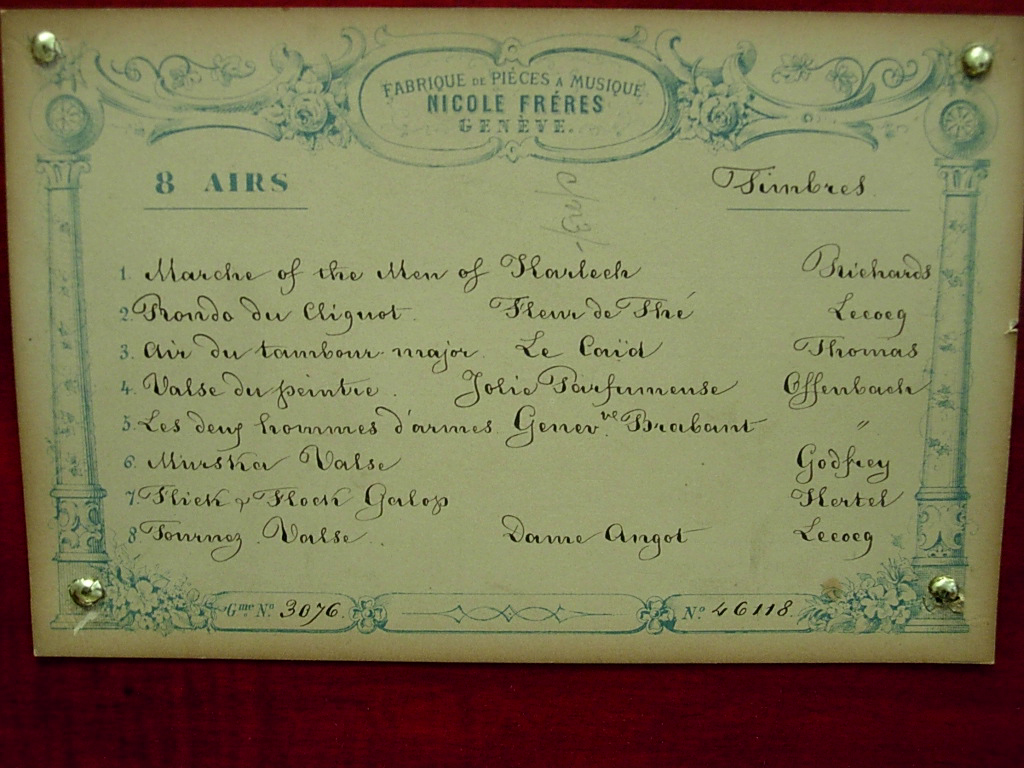 FABRIQUE DE PIÈCES A MUSIQUE
NICOLE FRÈRES
GENÈVE.
8 AIRS Timbres
1. Marche of the Men of Harlech Richards
2. Rondo du Clignot. Fleur de Thé Lecocq
3. Air du tambour major. Le Caïd Thomas
4. Valse du peintre. Jolie Parfumeuse Offenbach
5. Les deux hommes d'armes. Genevve Brabant "
6. Murska Valse Godfrey
7. Flick & Flock Galop Hertel
8 Tournez. Valse. Dame Angot Lecocq
Gme No. 3076. No. 46118.